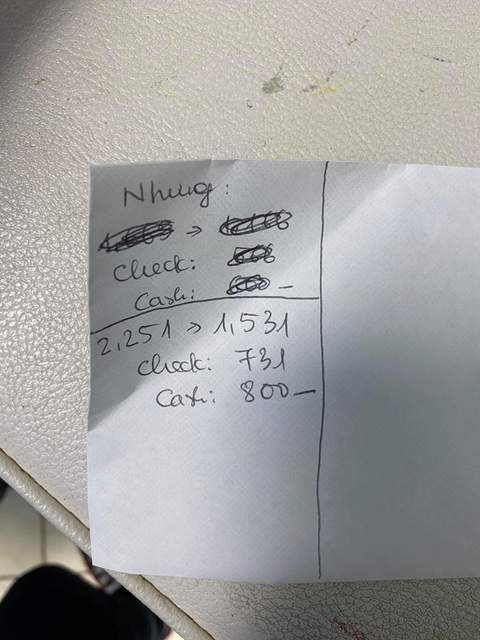 Nhung:
→
Check:
Cash: —
2,251 → 1,531
Check: 731
Cash: 800 —